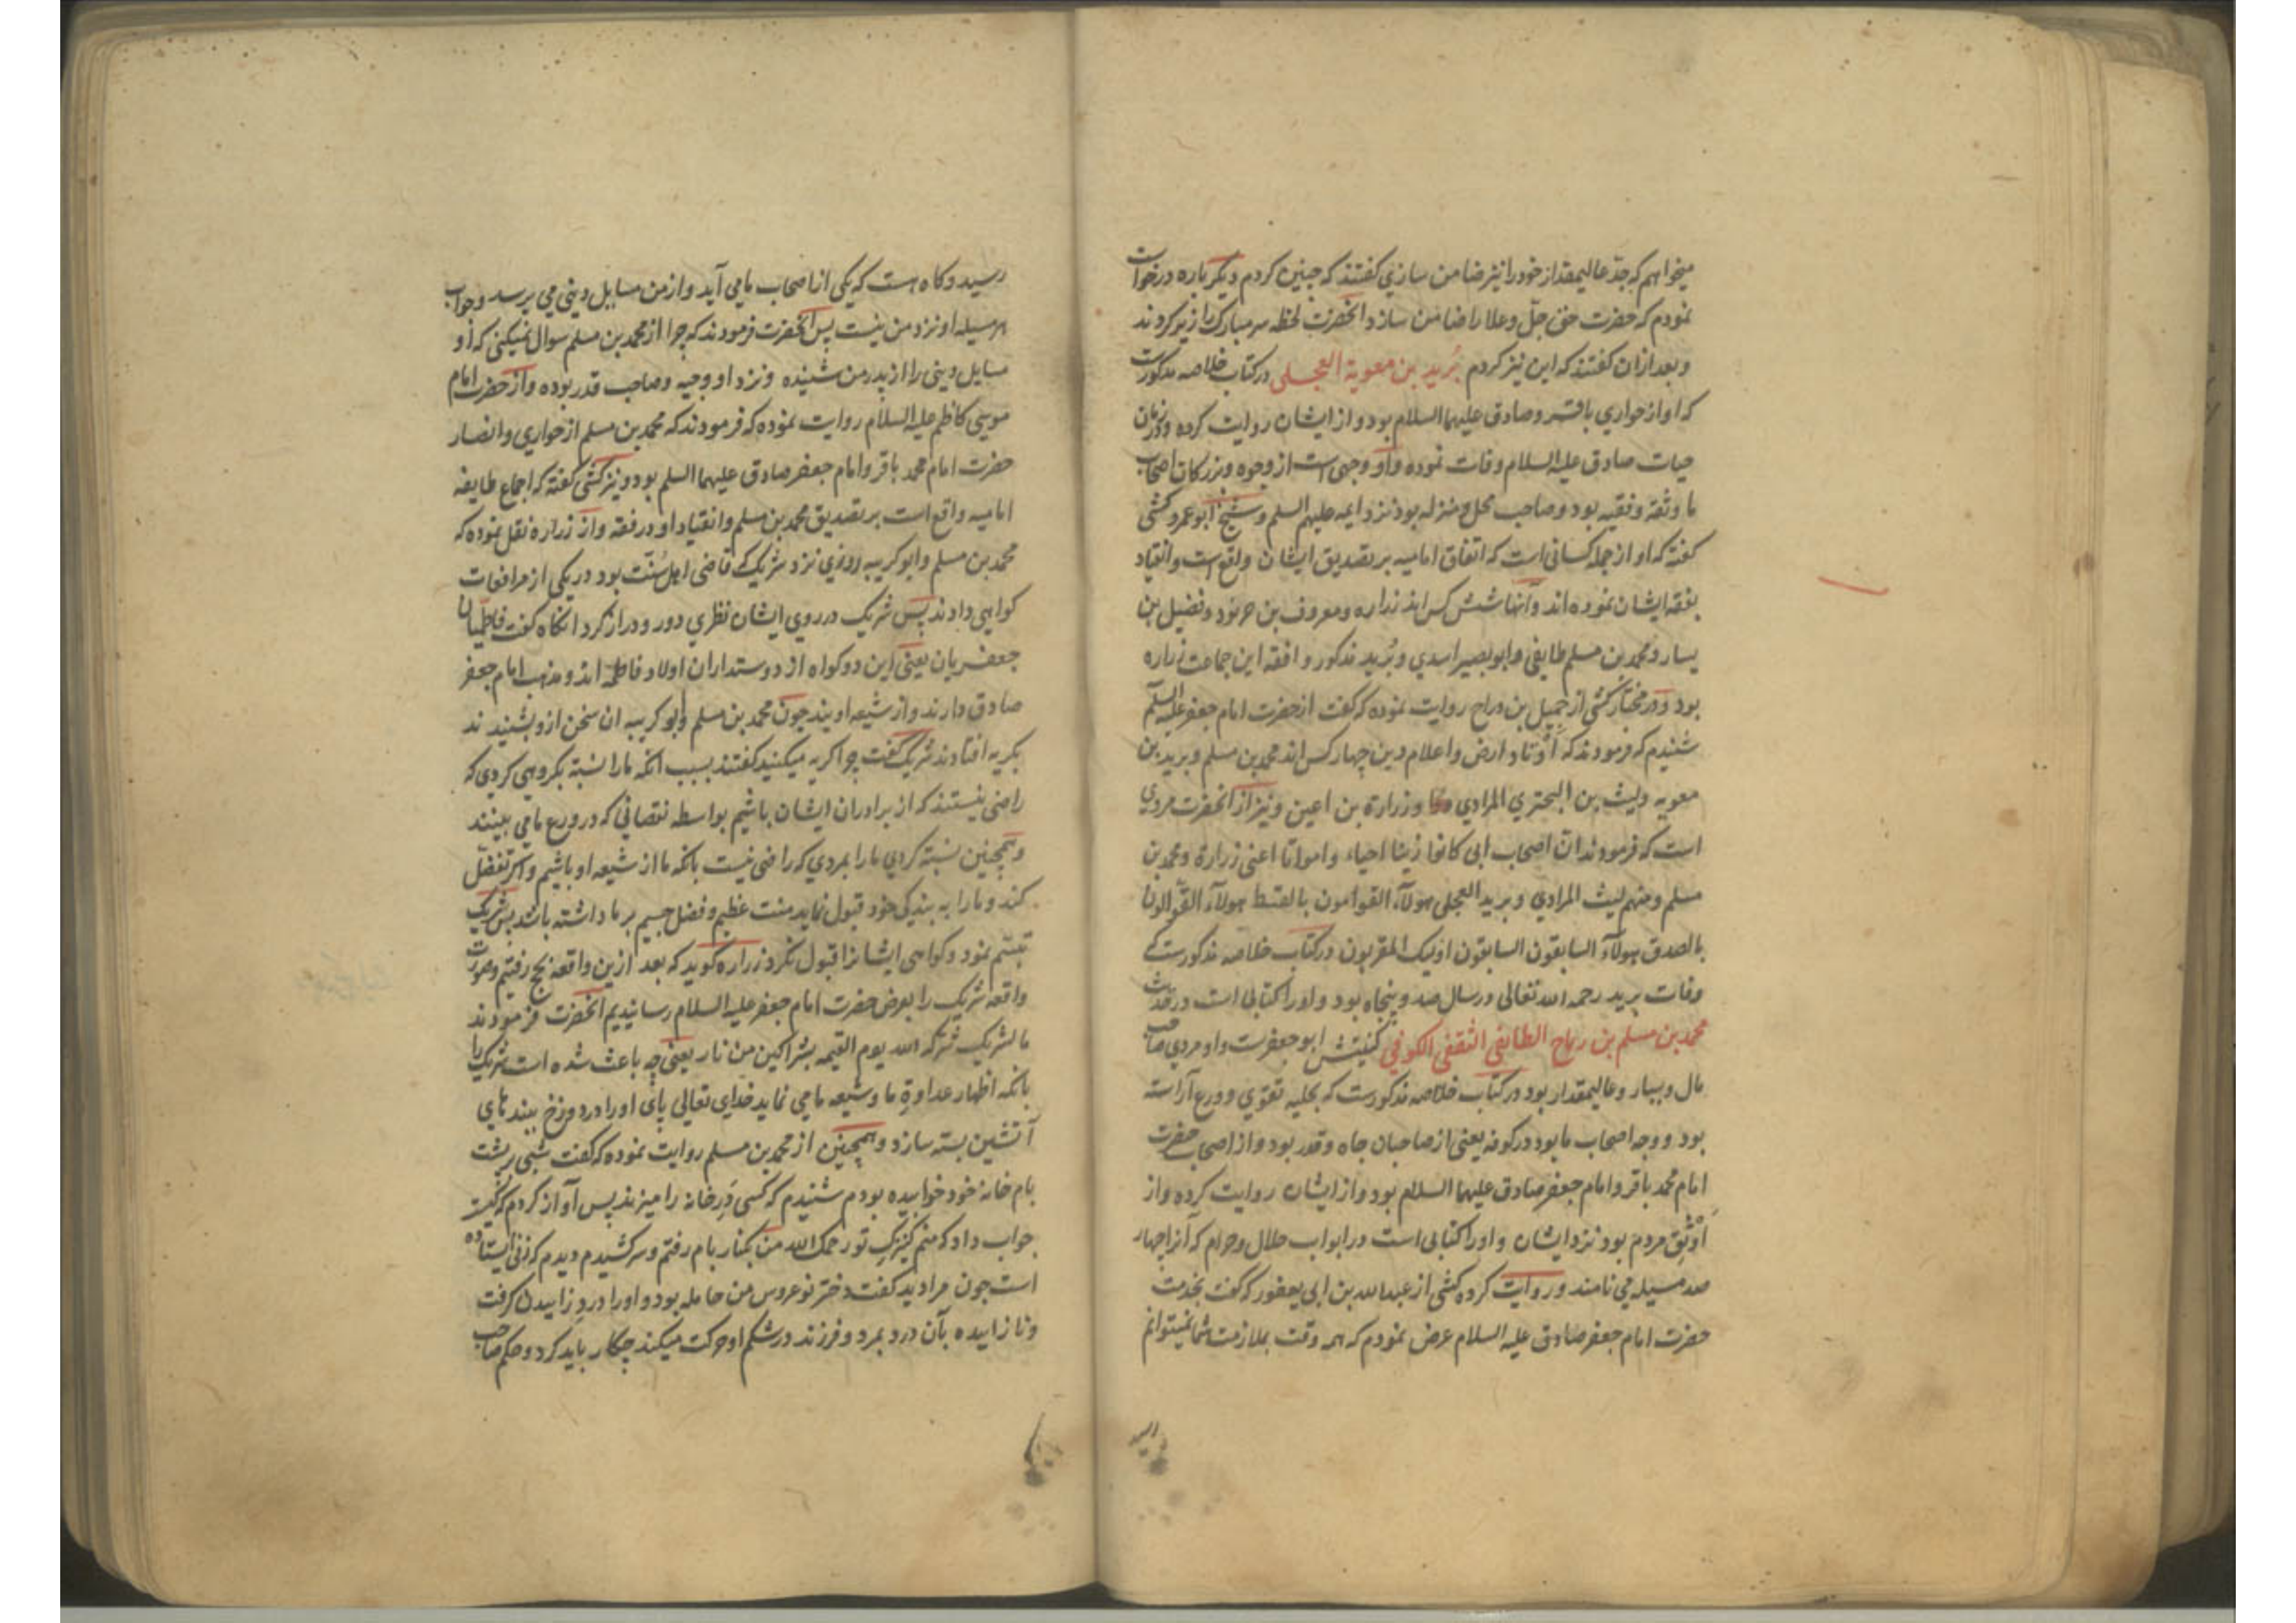 میخواهم که جدّ عالیمقدار خود را نیز ضامن سازی گفتند که چنین کردم دیگر باره درخواست
نمودم که حضرت حق جلّ و علا را ضامن سازد انحضرت لحظه سر مبارک را زیر کردند
و بعد ازان گفتند که این نیز کردم بُرید بن معویة العجلی در کتاب خلاصه مذکورست
که او از حواری باقر و صادق علیهما السلام بود و از ایشان روایت کرده و در زمان
حیات صادق علیه السلام وفات نموده و او وجهی است از وجوه و بزرکان اصحاب
ما و ثقة و فقیه بود و صاحب محل و منزله بود نزد ایمه علیهم السلم و شیخ ابو عمرو کشی
کفته که او از جمله کسانی است که اتفاق امامیه بر تصدیق ایشان واقع است و انقیاد
بفقه ایشان نموده اند و آنها شش کس اند زراره و معروف بن خربوذ و فضیل بن
یسار و محمد بن مسلم طایفی و ابو بصیر اسدی و بُرید مذکور و افقه این جماعت زراره
بود و در مختار کشی از جمیل بن دراج روایت نموده که کفت از حضرت امام جعفر علیه السلم
شنیدم که فرمودند که اَوتاد ارض و اعلام دین چهار کس اند محمد بن مسلم و برید بن
معویه و لیث بن البختری المرادی و زرارة بن اعین و نیز از انحضرت مروی
است که فرمودند ان اصحاب ابی کانوا زینا احیاء و امواتا اعنی زرارة و محمد بن
مسلم و منهم لیث المرادی و برید العجلی هولآء القوامون بالقسط هولآء القوالون
بالصدق هولآء السابقون السابقون اولیک المقربون در کتاب خلاصه مذکورست که
وفات برید رحمه الله تعالی در سال صد و پنجاه بود و او را کتابی است در حدیث
محمد بن مسلم بن ریاح الطایفی الثقفی الکوفی کنیتش ابو جعفرست و او مردی صاحب
مال و بیسار و عالیمقدار بود در کتاب خلاصه مذکورست که بحلیه تقوی و ورع آراسته
بود و وجه اصحاب ما بود در کوفه یعنی از صاحبان جاه و قدر بود و از اصحاب حضرت
امام محمد باقر و امام جعفر صادق علیهما السلام بود و از ایشان روایت کرده و از
اَوثَقِ مردم بود نزد ایشان و او را کتابی است در ابواب حلال و حرام که آنرا چهار
صد مسیله می نامند و روایت کرده کشی از عبدالله بن ابی یعفور که کفت بخدمت
حضرت امام جعفر صادق علیه السلام عرض نمودم که همه وقت بملازمت شما نمیتوانم
رسید
رسید و کاه هست که یکی از اصحاب ما می آید و از من مسایل دینی می پرسد و جواب
هر مسیله او نزد من نیست پس آنحضرت فرمودند که چرا از محمد بن مسلم سوال نمیکنی که او
مسایل دینی را از پدر من شنیده و نزد او وجیه و صاحب قدر بوده و از حضرت امام
موسی کاظم علیه السلام روایت نموده که فرمودند که محمد بن مسلم از حواری و انصار
حضرت امام محمد باقر و امام جعفر صادق علیهما السلم بود و نیز کشی کفته که اجماع طایفه
امامیه واقع است بر تصدیق محمد بن مسلم و انقیاد او در فقه و از زراره نقل نموده که
محمد بن مسلم و ابو کریبه روزی نزد شریک که قاضی اهل سُنّت بود در یکی از مرافعات
کواهی دادند پس شریک در روی ایشان نظری دور و دراز کرد انکاه کفت فاطمیان
جعفریان یعنی این دو کواه از دوستداران اولاد فاطمه اند و مذهب امام جعفر
صادق دارند و از شیعه اویند چون محمد بن مسلم و ابو کریبه ان سخن ازو بشنیدند
بکریه افتادند شریک کفت چرا کریه میکنید کفتند بسبب انکه ما را نسبة بکروهی کردی که
راضی نیستند که از برادران ایشان باشیم بواسطه نقصانی که در ورع ما می بینند
و همچنین نسبة کردی ما را بمردی که راضی نیست بانکه ما از شیعه او باشیم و اکر تفضّل
کند و ما را به بندکی خود قبول نماید منت عظیم و فضل جسیم بر ما داشته باشد پس شریک
تبسّم نمود و کواهی ایشانرا قبول نکرد زراره کوید که بعد ازین واقعه بحج رفتیم و صورت
واقعه شریک را بعرض حضرت امام جعفر علیه السلام رسانیدیم انحضرت فرمودند
ما لشریک شرکه الله یوم القیمه بشراکین من نار یعنی چه باعث شده است شریک را
بانکه اظهار عداوةِ ما و شیعه ما می نماید خدای تعالی پای او را در دوزخ ببندهای
آتشین بسته سازد و همچنین از محمد بن مسلم روایت نموده که کفت شبی بر پشت
بام خانهٔ خود خوابیده بودم شنیدم که کسی دَرِ خانه را میزند پس آواز کردم که کیست
جواب داد که منم کنیزکِ تو رحمک الله من بکنار بام رفتم و سر کشیدم دیدم که زنی ایستاده
است چون مرا دید کفت دختر نو عروس من حامله بود و او را دردِ زاییدن کرفت
و نا زاییده بآن درد بمرد و فرزند در شکم او حرکت میکند چکار باید کرد و حکم صاحب